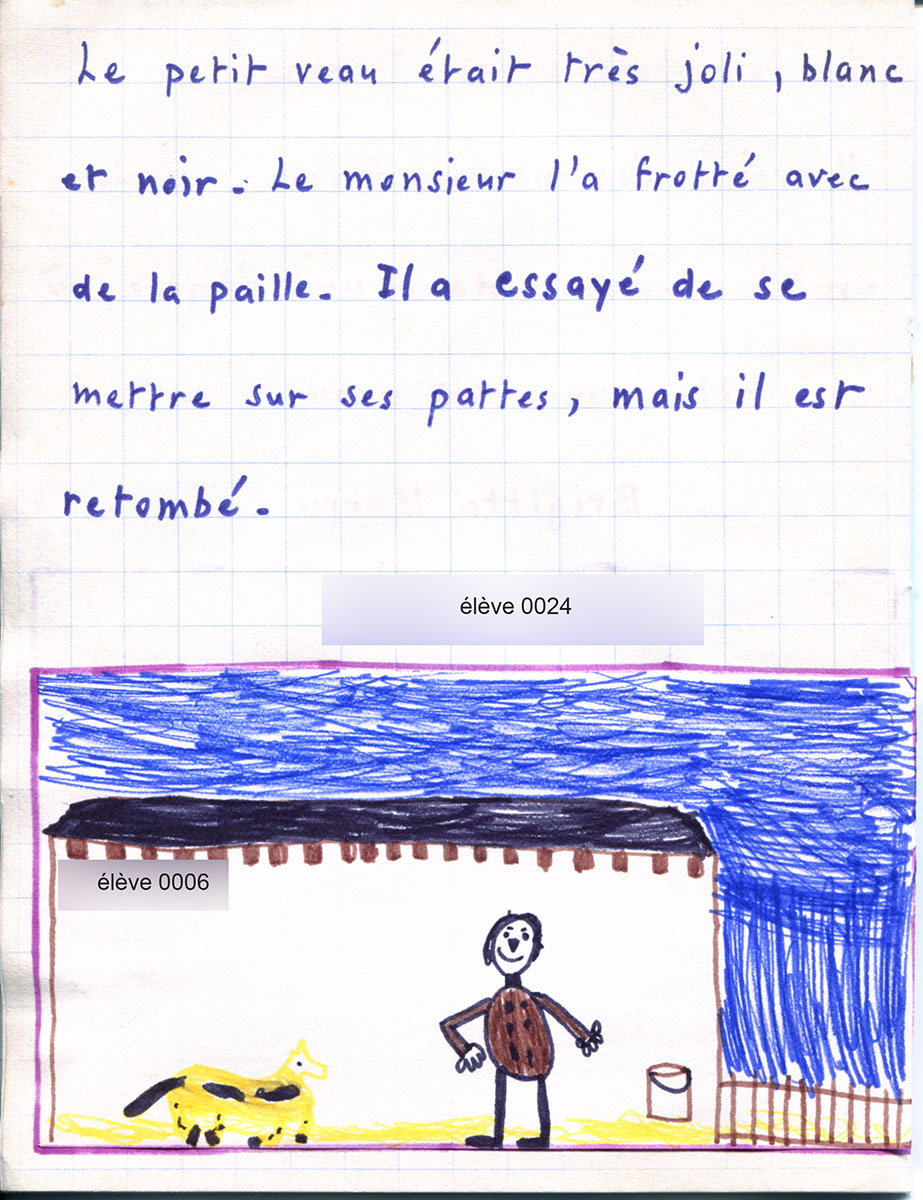 Le petit veau était très joli, blanc
et noir. Le monsieur l'a frotté avec
de la paille. Il a essayé de se
mettre sur ses pattes, mais il est
retombé.
élève 0024
élève 0006